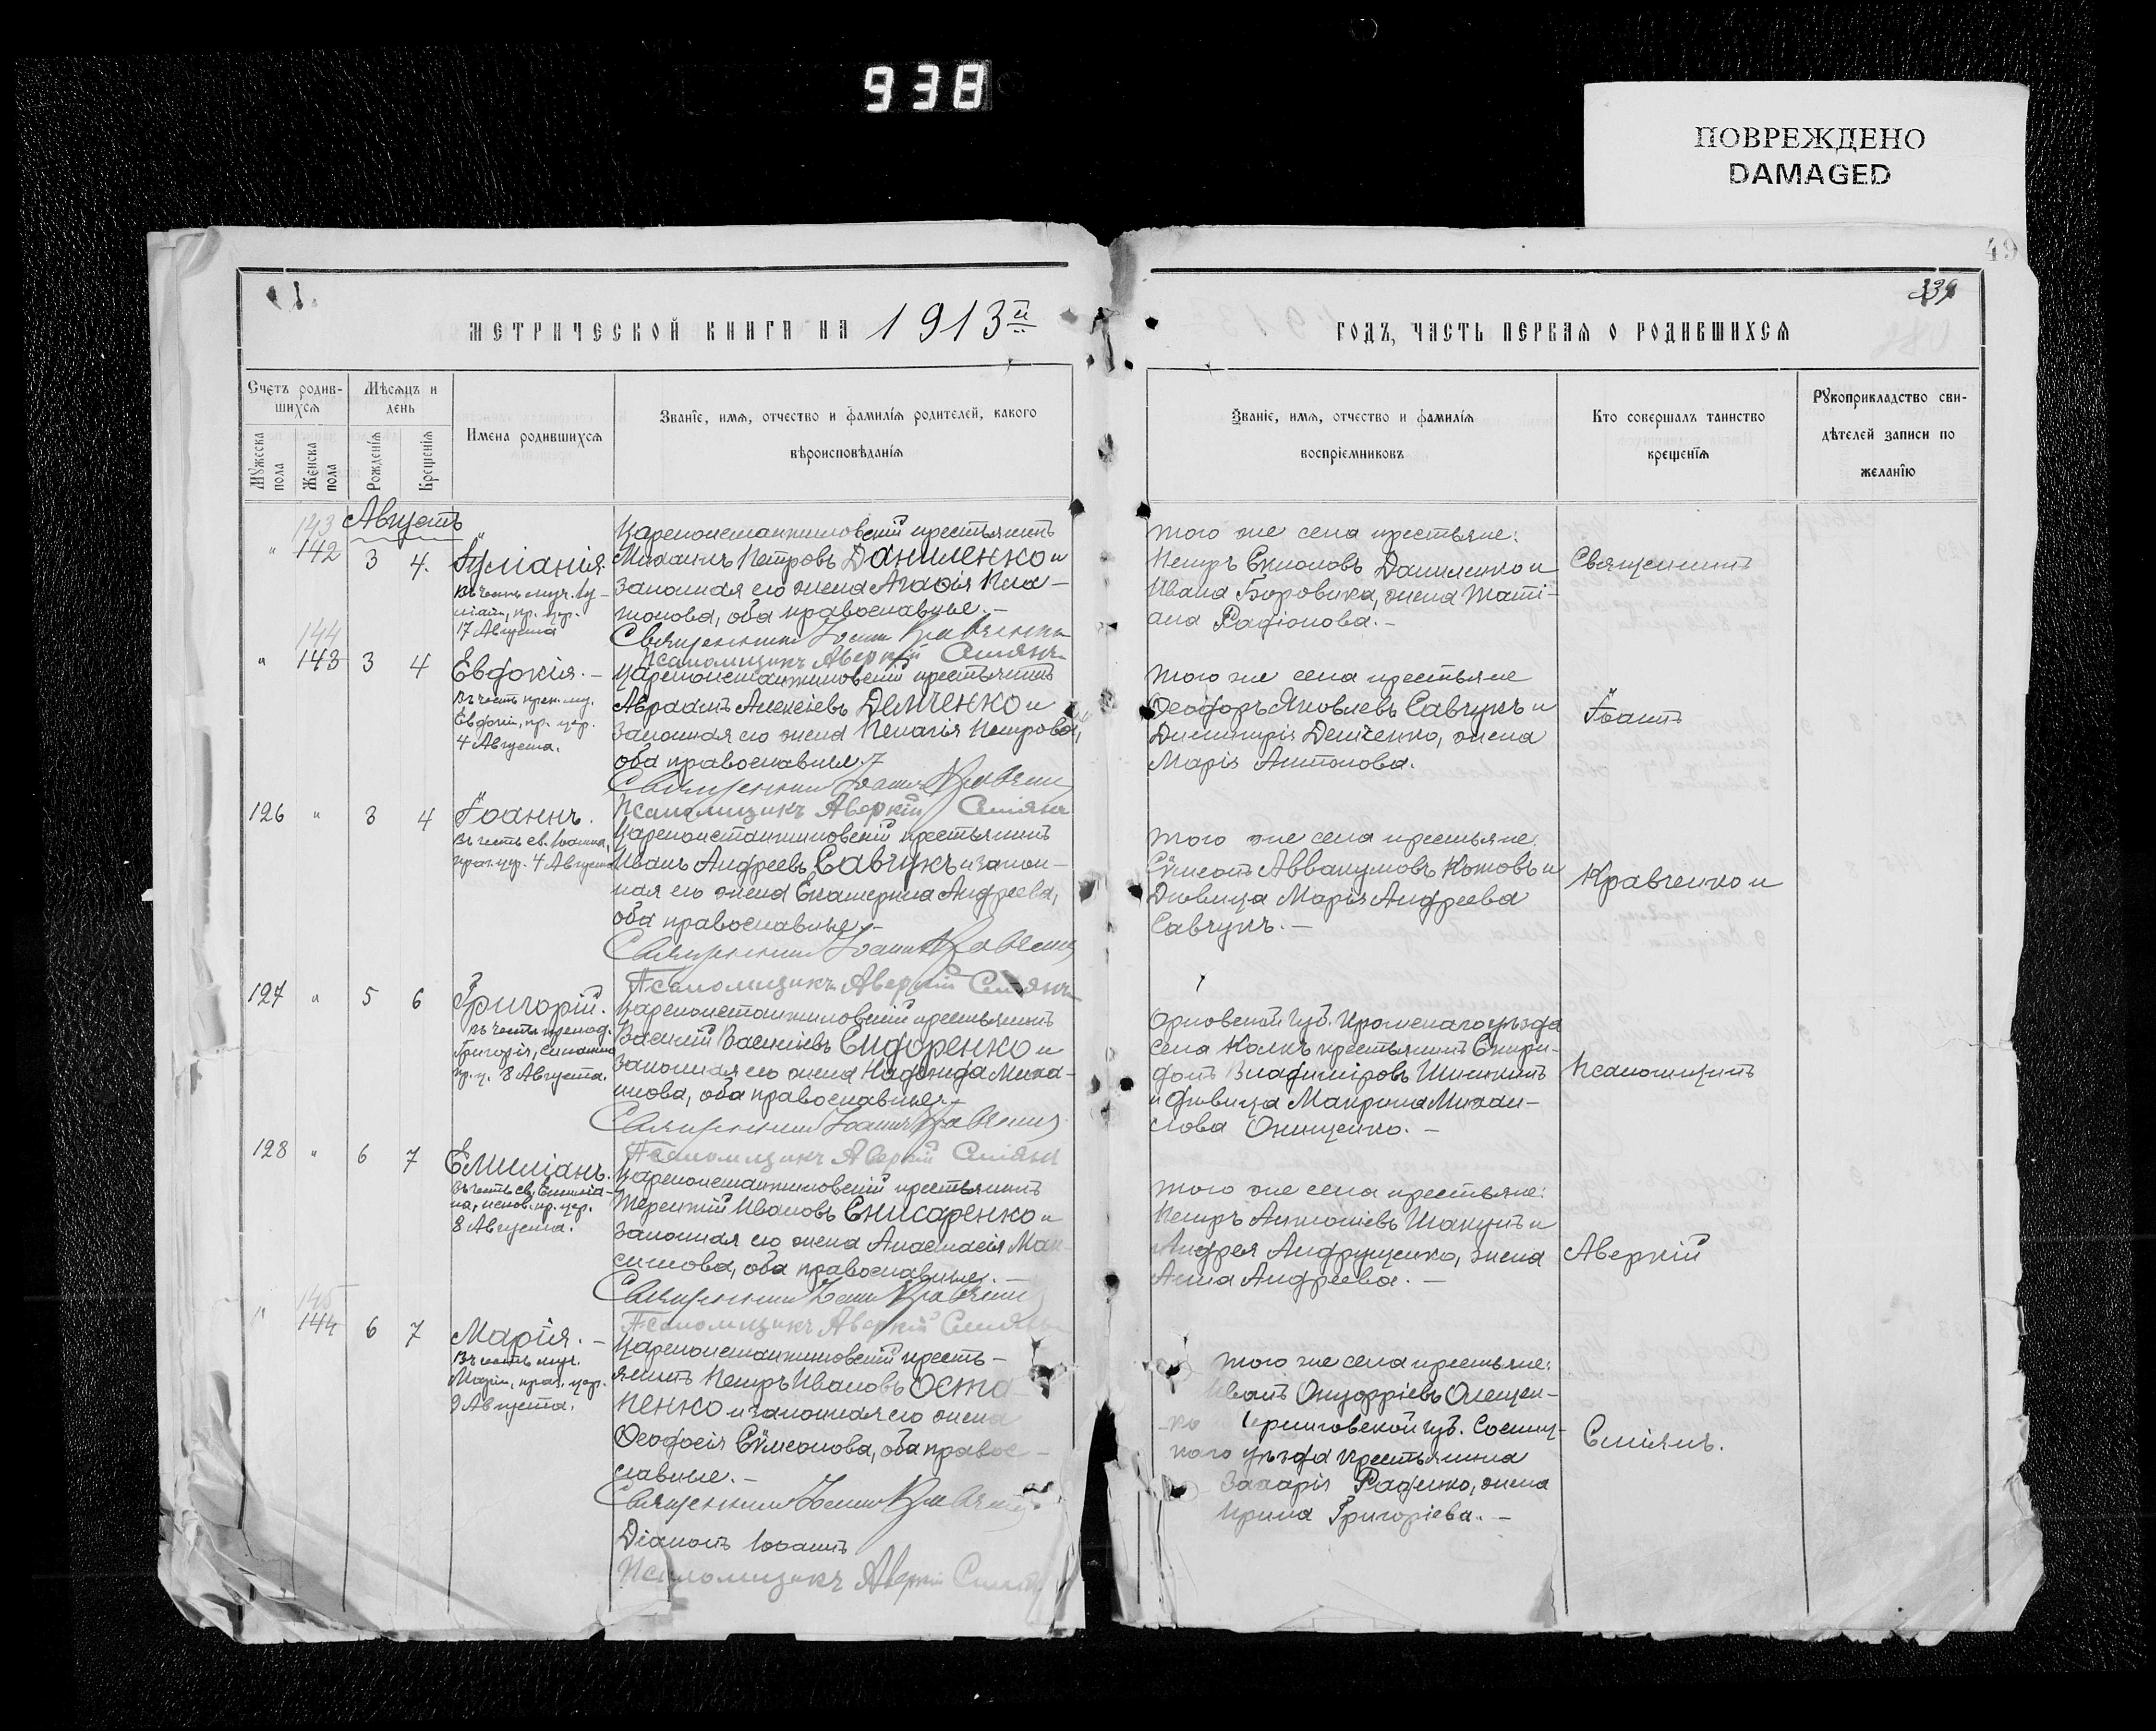 938
ПОВРЕЖДЕНО
DAMAGED
49
339
I.
МЕТРИЧЕСКОЙ КНИГИ НА 1913й
ГОДЪ, ЧАСТЬ ПЕРВАЯ О РОДИВШИХСЯ
Счетъ родив-
шихся
Мѣсяцъ и
день
Мужеска
пола
Женска
пола
Рожденія
Крещенія
Имена родившихся
Званіе, имя, отчество и фамилія родителей, какого
вѣроисповѣданія
Званіе, имя, отчество и фамилія
воспріемниковъ
Кто совершалъ таинство
крещенія
Рукоприкладство сви-
дѣтелей записи по
желанію
Августъ
143
" 142 3 4.
Іуліанія.
въ честь муч. Іу-
ліан., пр. цер.
17 Августа
Цареконстантиновскій крестьянинъ
Михаилъ Петровъ Даниленко и
законная его жена Агафія Пла-
тонова, оба православные. —
Священникъ Іоаннъ Кравченко
Псаломщикъ Аверкій Смѣянъ
того же села крестьяне:
Петръ Даниленко и
Ивана Боровика, жена Таті-
ана Радіонова. —
Священникъ
144
" 143 3 4
Евдокія. —
въ честь преп. муч.
Евдокіи, пр. цер.
4 Августа.
Цареконстантиновскій крестьянинъ
Авраамъ Алексіевъ Демченко и
законная его жена Пелагія Петрова,
оба православные.
Священникъ Іоаннъ Кравченко
Псаломщикъ Аверкій Смѣянъ
того же села крестьяне
Феодоръ Яковлевъ Савчукъ и
Димитрія Демченко, жена
Марія Антонова.
Іоаннъ
126 " 3 4
Іоаннъ.
въ честь св. Іоанна,
праз. цер. 4 Августа
Цареконстантиновскій крестьянинъ
Иванъ Андреевъ Савчукъ и закон-
ная его жена Екатерина Андреева,
оба православные. —
Священникъ Іоаннъ Кравченко
Псаломщикъ Аверкій Смѣянъ
того же села крестьяне.
Сѵмеонъ Аввакумовъ Котовъ и
Дѣвица Марія Андреева
Савчукъ. —
Кравченко и
127 " 5 6
Григорій.
въ честь препод.
Григорія, Синаита
пр. ц. 8 Августа.
Цареконстантиновскій крестьянинъ
Василій Василіевъ Сидоренко и
законная его жена Надежда Миха-
илова, оба православные. —
Священникъ Іоаннъ Кравченко
Псаломщикъ Аверкій Смѣянъ
Орловской губ. Кромскаго уѣзда
села крестьянинъ Спири-
донъ Владиміровъ Шишкинъ
и дѣвица Макрина Михаи-
лова Онищенко. —
Псаломщикъ
128 " 6 7
Емиліанъ.
въ честь св. Емиліа-
на, испов. пр. цер.
8 Августа.
Цареконстантиновскій крестьянинъ
Терентій Ивановъ Снисаренко и
законная его жена Анастасія Мак-
симова, оба православные. —
Священникъ Іоаннъ Кравченко
Псаломщикъ Аверкій Смѣянъ
того же села крестьяне:
Петръ Антоніевъ Шакунъ и
Андрея Андрущенко, жена
Анна Андреева. —
Аверкій
145
" 144 6 7
Марія. —
въ честь муч.
Маріи, праз. цер.
9 Августа.
Цареконстантиновскій кресть-
янинъ Петръ Ивановъ Оста-
пенко и законная его жена
Феодосія Сѵмеонова, оба право-
славные. —
Священникъ Іоаннъ Кравченко
Діаконъ Іоаннъ
Псаломщикъ Аверкій Смѣянъ
того же села крестьяне:
Иванъ Онуфріевъ Олещен-
ко Черниговской губ. Сосниц-
каго уѣзда крестьянина
Захарія Раденко, жена
Ирина Григоріева. —
Смѣянъ.